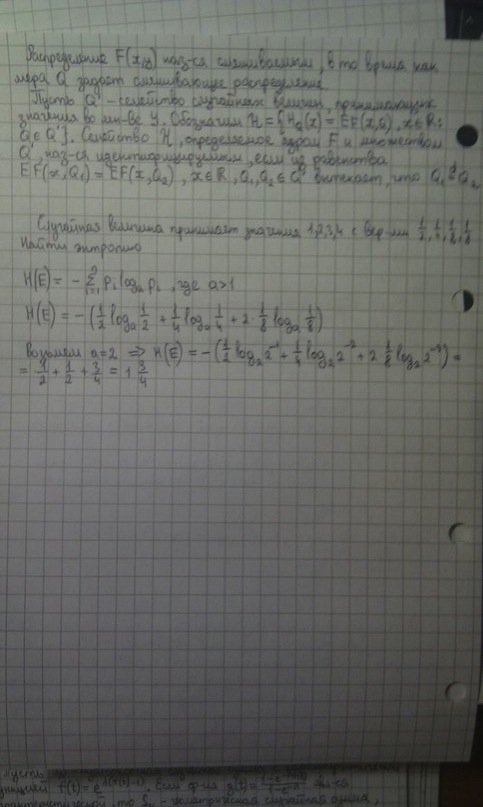 Распределение F(x,y) наз-ся смешиваемым, в то время как
мера Q задает смешивающее распределение.
Пусть Q' - семейство случайных величин, принимающих
значения во мн-ве Y. Обозначим H = { H_Q(x) = EF(x,Q), x∈R:
Q∈Q' }. Семейство H, определяемое ядром F и множеством
Q', наз-ся идентифицируемым, если из равенства
EF(x,Q₁) = EF(x,Q₂), x∈R, Q₁,Q₂∈Q' вытекает, что Q₁ d= Q₂
Случайная величина принимает значения 1,2,3,4 с вер-ми 1/2, 1/4, 1/8, 1/8
Найти энтропию
H(E) = - Σ pᵢ logₐ pᵢ, где a>1
H(E) = -(1/2 logₐ 1/2 + 1/4 logₐ 1/4 + 2 · 1/8 logₐ 1/8)
Возьмем a=2 ⇒ H(E) = -(1/2 log₂ 2⁻¹ + 1/4 log₂ 2⁻² + 2 1/8 log₂ 2⁻³) =
= 1/2 + 1/2 + 3/4 = 1 3/4
Пусть
f(t) = e
Если ф-ия g(t) =
то
случайная